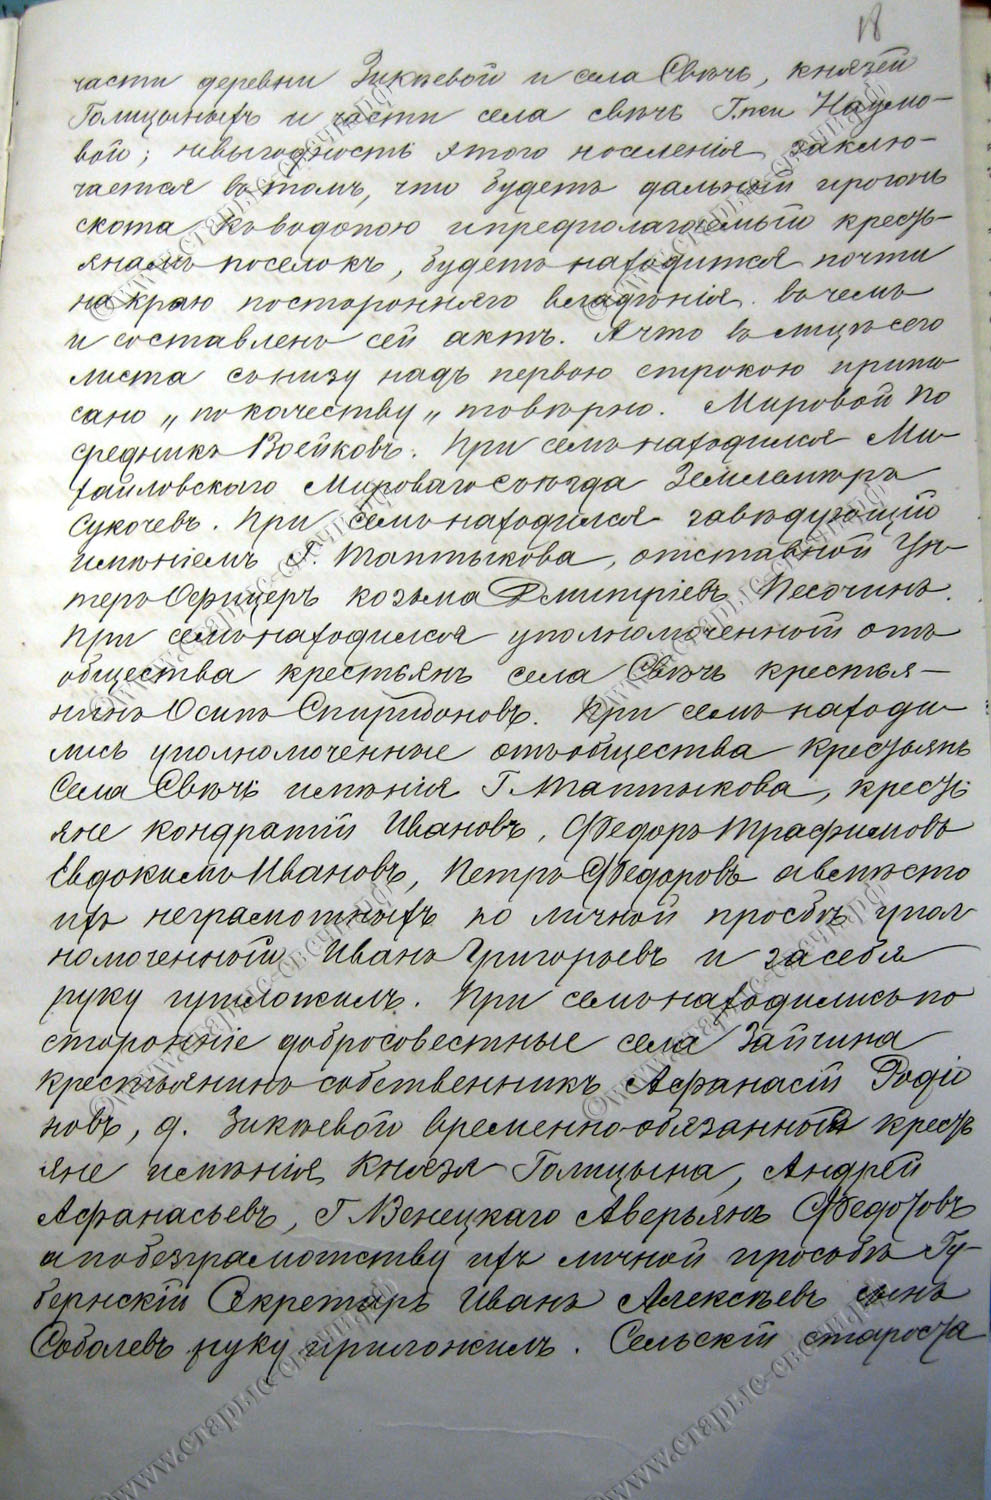 18
части деревни Зикѣевой и села Свѣчь, князей
Голицыныхъ и части села свѣчь Г.жи Наумо-
вой; невыгодность этого поселенія заклю-
чается въ томъ, что будетъ дальній прогонъ
скота къ водопою и предполагаемый кресть-
янамъ поселокъ, будетъ находится почти
на краю посторонняго владѣнія. въ чемъ
и составленъ сей актъ. А что въ лицѣ сего
листа съ низу надъ первою строкою припи
сано „по качеству„ то вѣрно. Мировой По
средникъ Воейковъ. При семъ находился Ми-
хайловскаго Мироваго съѣзда Землемѣръ
Сукочевъ. При семъ находился завѣдующій
имѣніемъ Г. Таптыкова, отставной Ун-
теръ Офицеръ козьма Дмитріевъ Песочинъ.
При семъ находился уполномоченной отъ
общества крестьянъ села Свѣчь крестья-
нинъ Осипъ Спиридоновъ. При семъ находи-
лись уполномоченные отъ общества крестьянъ
Села Свѣчь имѣнія Г. Таптыкова, кресть
яне кондратій Ивановъ, Федоръ Трафимовъ
Евдокимъ Ивановъ, Петръ Федоровъ а вмѣсто
ихъ неграмотныхъ по личной просбѣ упол
номоченный Иванъ Григорьевъ и за себя
руку приложилъ. При семъ находились по
сторонніе добросовестные села Зайчина
крестьянинъ-собственникъ Афанасій Родіо
новъ, д. Зикѣевой временно-обязанныя кресть
яне имѣнія Князя Голицына, Андрей
Афанасьевъ, Г. Венецкаго Аверьянъ Федотовъ
а по безграмотству ихъ личной прособѣ Гу-
бернскій Секретарь Иванъ Алексѣевъ сынъ
Соболевъ руку приложилъ. Сельскій староста
©www.старые-свечи.рф
©www.старые-свечи.рф
©www.старые-свечи.рф
©www.старые-свечи.рф
©www.старые-свечи.рф
©www.старые-свечи.рф
©www.старые-свечи.рф
©www.старые-свечи.рф